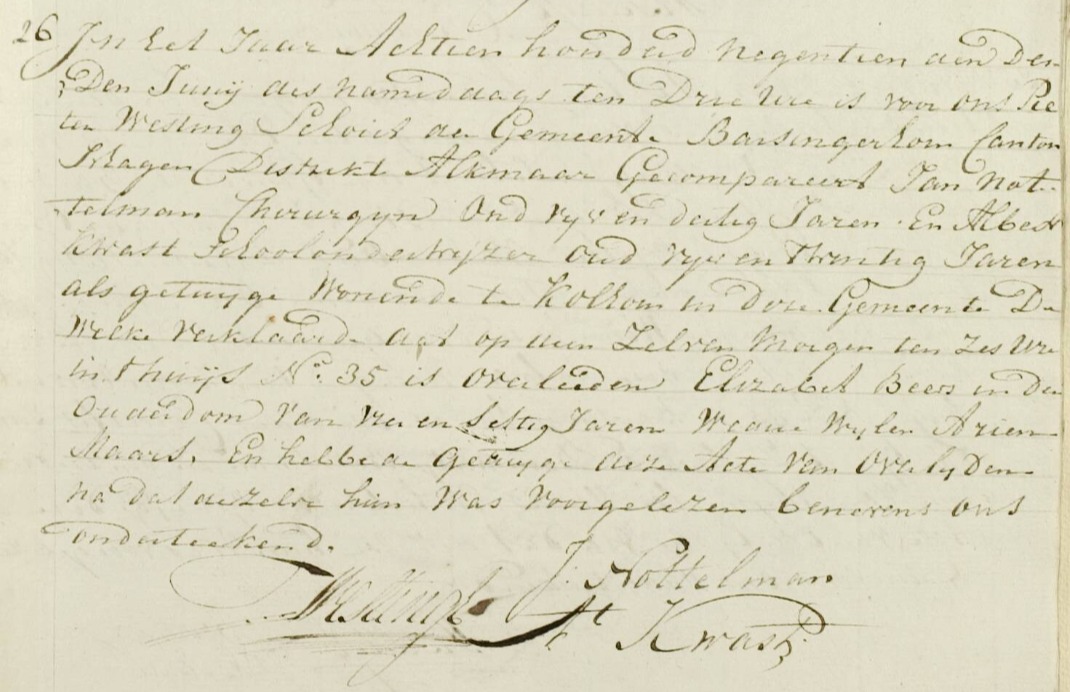 26 In het Jaar Achtien honderd negentien den Der-
den Junij des nameddags ten Drie Ure is voor ons Pie
ter Westing Schout der Gemeente Barsingerhorn Canton
Schagen Distrikt Alkmaar Gecompareert Jan Not-
telman Chirurgyn Oud vyf en dertig Jaren. En Albert
Kwast Schoolonderwyzer Oud vyf en Twintig Jaren
als getuyge Wonende te Kolhorn in deze Gemeente De
Welke verklaarde dat op den Zelven Morgen ten zes Ure
in t huijs No. 35 is overleeden Elizabet Beers in den
Ouderdom van vier en Jaren Weduwe Wylen Arien
Maars. En hebbe de Getuyge deze Acte van Overlyden
na dat dezelve hun Was voorgelezen benevens ons
onderteekend.
J. Nottelman
PWesting
At Kwast